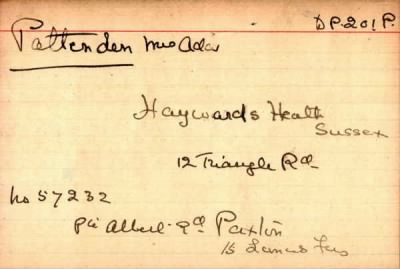 D.P. 201 P.
Pattenden Mrs Ada
Haywards Heath
Sussex
12 Triangle Rd
No 57232
Pte Albert Rd Paxton
15 Lancs Fus